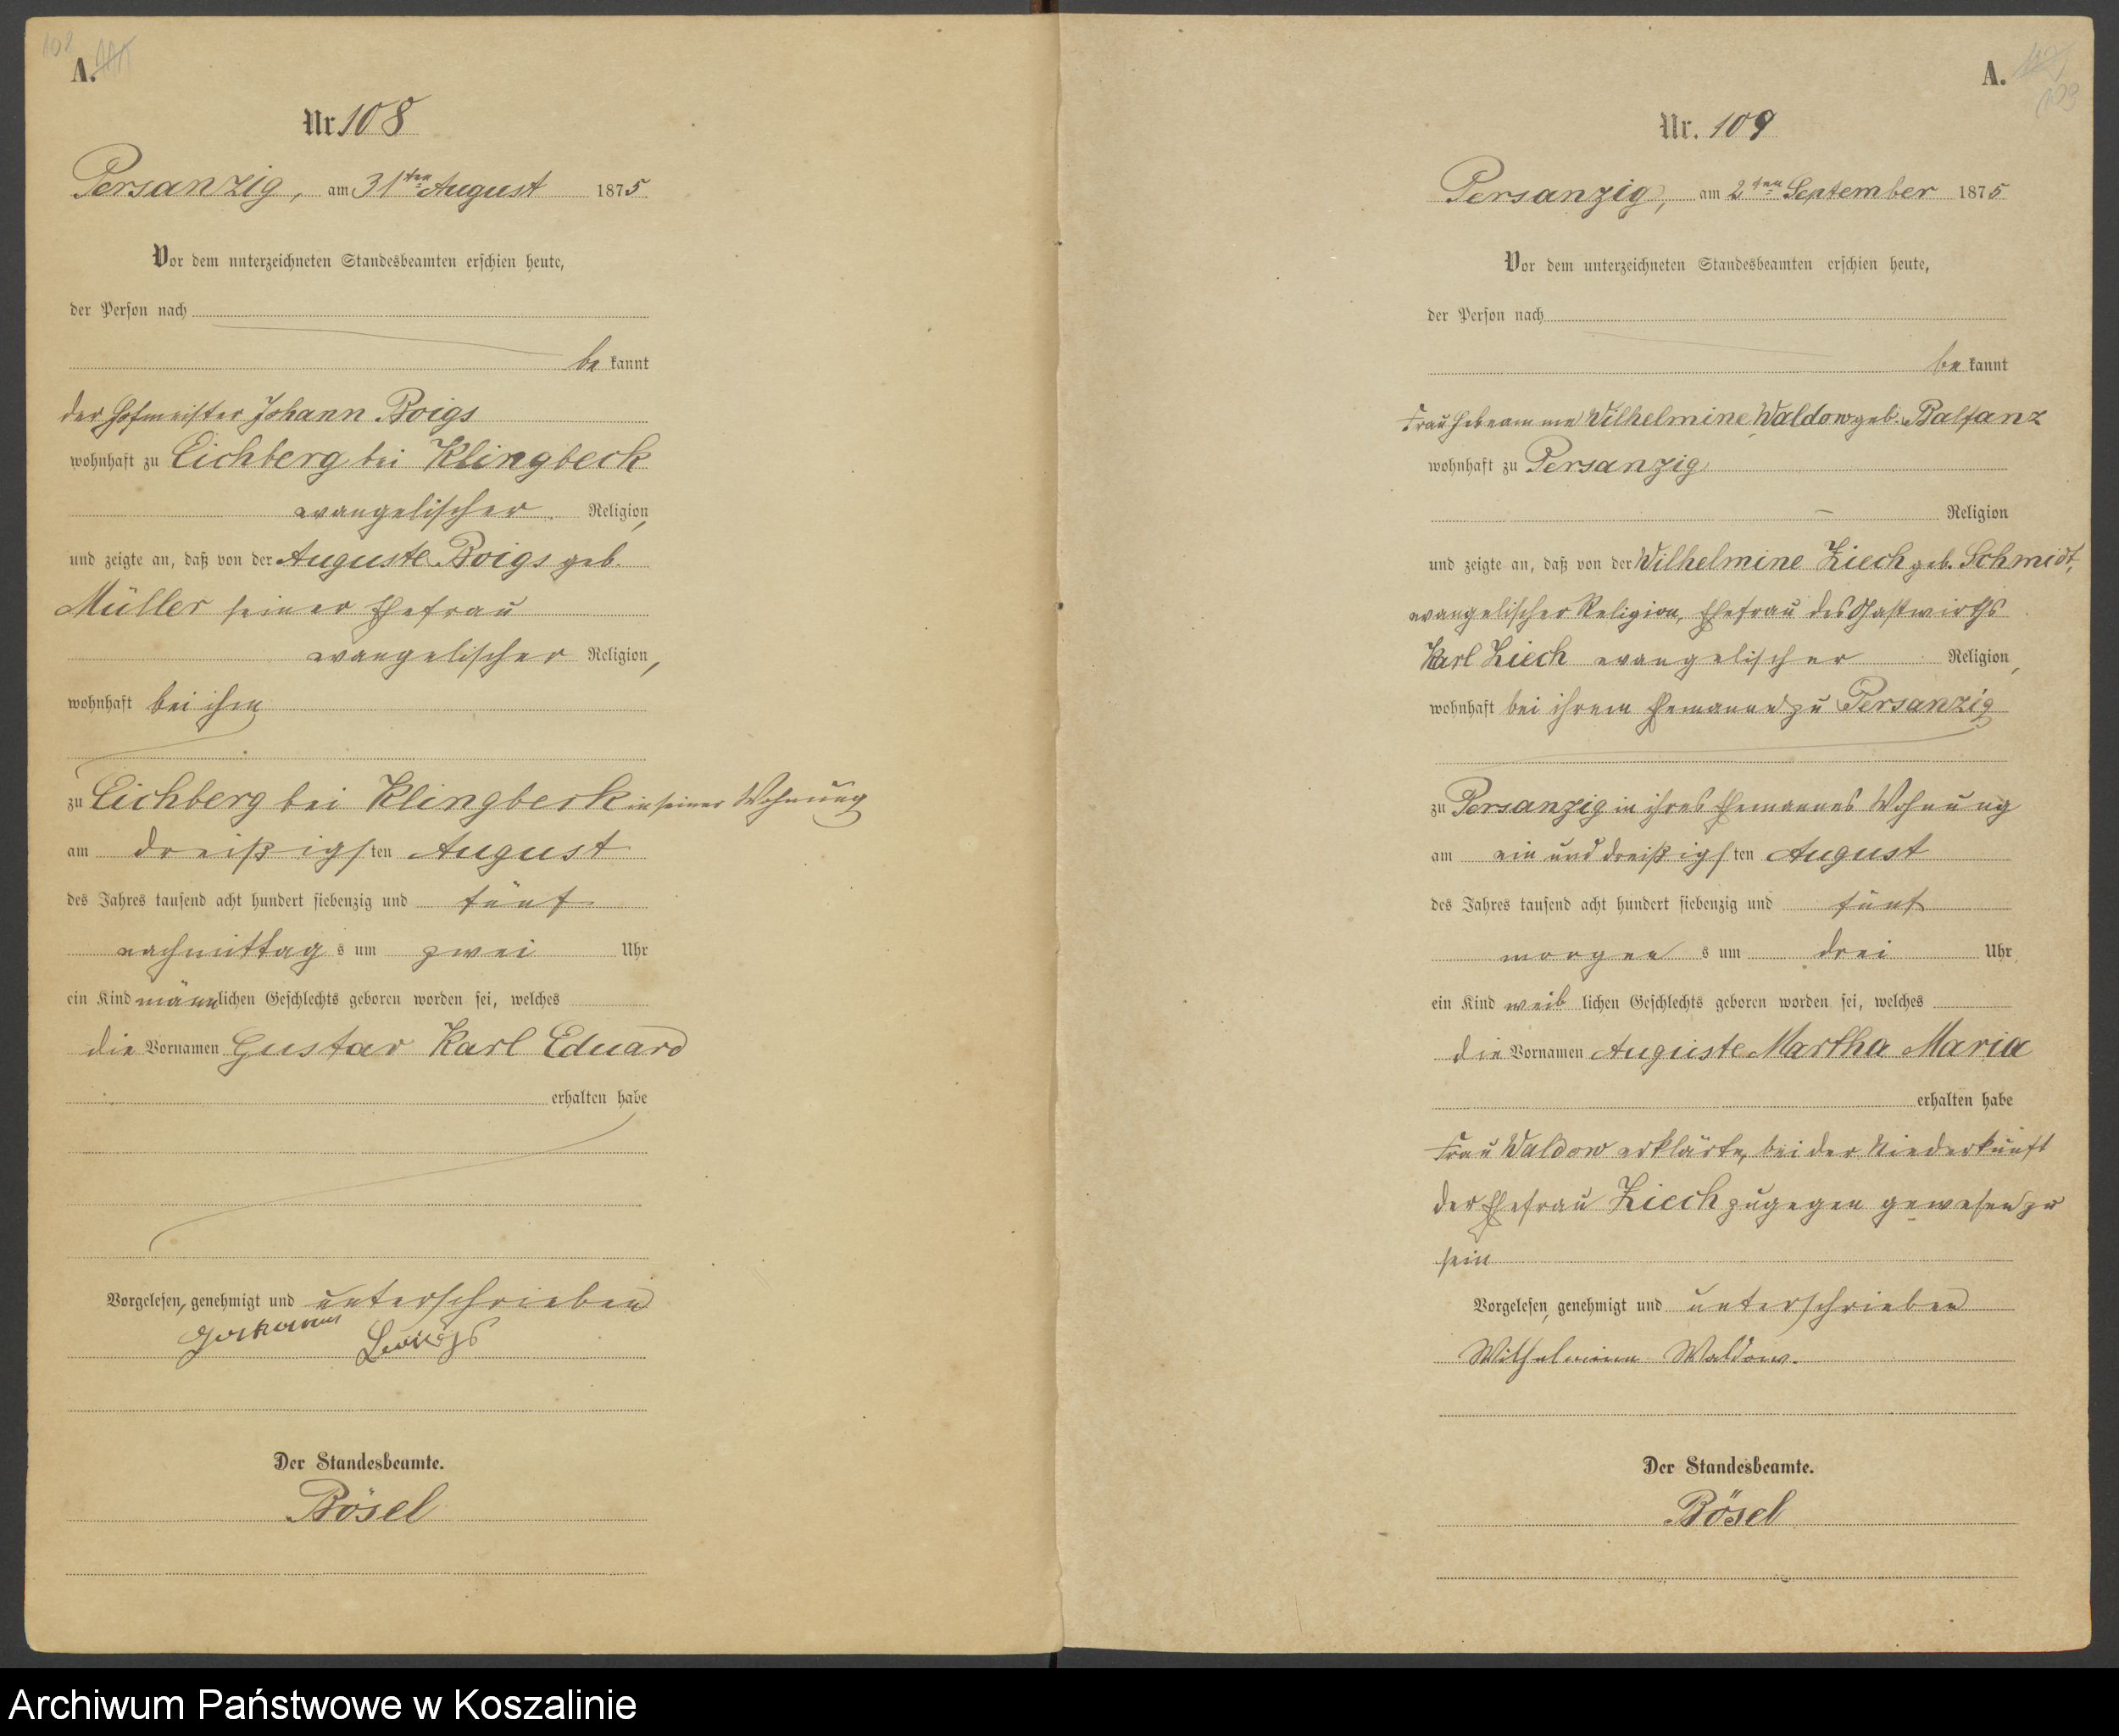 108
A.
Nr. 108
Persanzig, am 31ten August 1875
Vor dem unterzeichneten Standesbeamten erschien heute,
der Person nach
be kannt
der Hofmeister Johann Boigs
wohnhaft zu Eichberg bei Klingbeck
evangelischer Religion,
und zeigte an, daß von der Auguste Boigs geb.
Müller seiner Ehefrau
evangelischer Religion,
wohnhaft bei ihm
zu Eichberg bei Klingbeck in seiner Wohnung
am dreißigsten August
des Jahres tausend acht hundert siebenzig und fünf
nachmittags um zwei Uhr
ein Kind männlichen Geschlechts geboren worden sei, welches
die Vornamen Gustav Karl Eduard
erhalten habe
Vorgelesen, genehmigt und unterschrieben
Johann
Der Standesbeamte.
Bösel
A.
109
Nr. 109
Persanzig, am 2ten September 1875
Vor dem unterzeichneten Standesbeamten erschien heute,
der Person nach
be kannt
Frau Hebeamme Wilhelmine Waldow geb. Balfanz
wohnhaft zu Persanzig
— Religion
und zeigte an, daß von der Wilhelmine Ziech geb. Schmidt,
evangelischer Religion, Ehefrau des Gastwirths
Karl Ziech evangelischer Religion,
wohnhaft bei ihrem Ehemanne zu Persanzig
zu Persanzig in ihres Ehemannes Wohnung
am ein und dreißigsten August
des Jahres tausend acht hundert siebenzig und fünf
morgens um drei Uhr
ein Kind weiblichen Geschlechts geboren worden sei, welches
die Vornamen Auguste Martha Maria
erhalten habe
Frau Waldow erklärte, bei der Niederkunft
der Ehefrau Ziech zugegen gewesen zu
sein
Vorgelesen, genehmigt und unterschrieben
Wilhelmine Waldow.
Der Standesbeamte.
Bösel
Archiwum Państwowe w Koszalinie